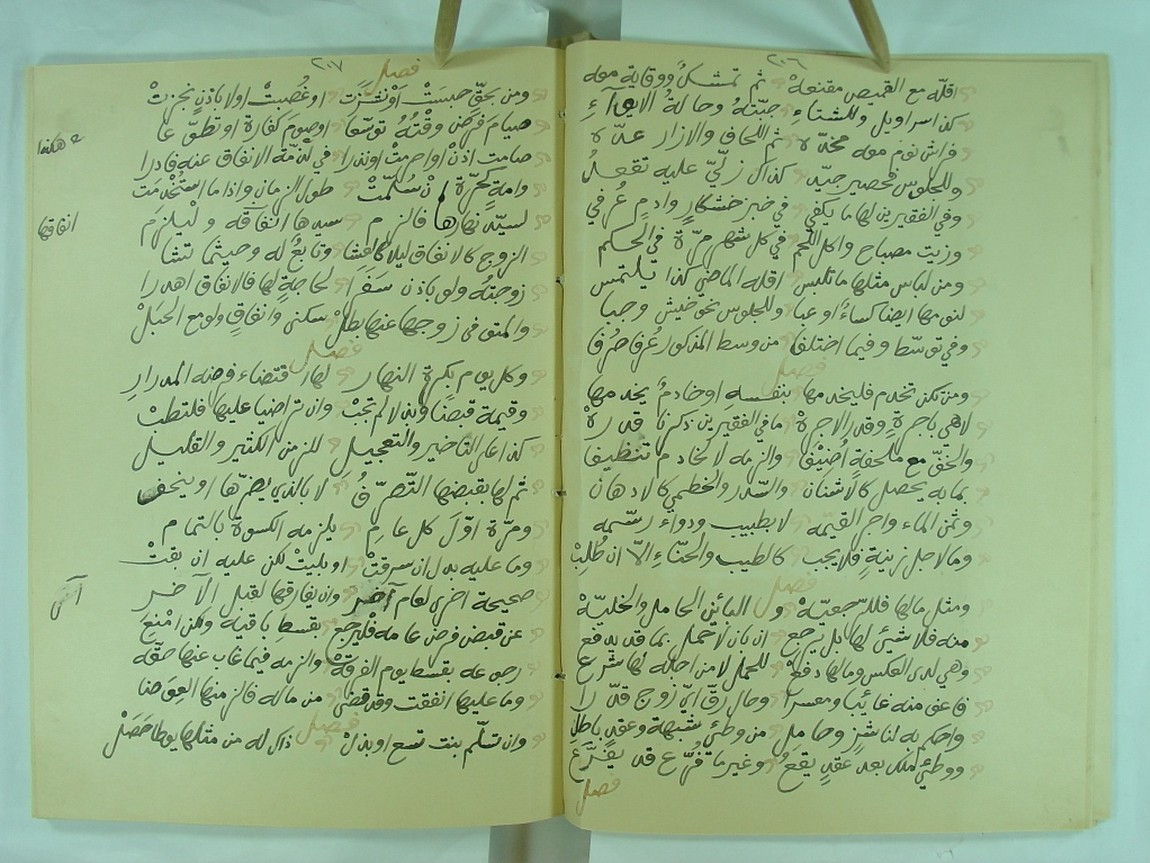 ٢٠٦
اقله مع القميص مقنعة ثم تمشك ووقاية معه
كذا سراويل وللشتاء جبّته وحالة الايواء
فراش نوم معه مخدّة ثم اللحاف والازار عدّة
وللجلوس فحصير جيّد كذاك زلّيّ عليه تقعد
وفي الفقيرين لها ما يكفي في خبز خشكار وادم عرفي
وزيت مصباح واكل اللحم في كل شهر مرّة في الحكم
ومن لباس مثلها ما تلبس اقله الماضي كذا يلتمس
لنومها ايضا كساءً او عبا وللجلوس نحو خيش وجبا
وفي توسّط وفيما اختلفا من وسط المذكور عرفا صرفا
فصل
ومن تكن تخدم فليخدمها بنفسه او خادمٌ يخدمها
لا هي باجرة وقدر الاجرة ما في الفقيرين ذكرنا قدره
والخفّ مع ملحفة أضيفا والزمه لا لخادم تنظيفا
بما به يحصل كالاشنان والسّدر والخطمي كالادهان
وثمن الماء واجر القيمه لا بطبيب ودواء رسّمه
وما لاجل زينةٍ فلا يجب كالطيب والحنّاء الاّ ان طُلِبْ
فصل
ومثل ما لها فللرّجعيّة و البائن الحامل والخليّة
منه فلا شيئ لها بل يرجع ان بان لا حمل بما قد يدفع
وهي لدى العكس وما لها دفع للحمل لا من اجله لها شرع
واحكم به لناشز وحامل من وطئ شبهة وعقد باطل
فصل
٢٠٧
فصل
ومن بحقّ حبست او نشزت او غُصبت او لا باذن نجزت
صيام فرض وقته توسّعا او صوم كفارة او تطوّعا
صامت اذن او احرمت او نذرا في ذمّة الانفاق عنه قادرا
هكذا
وامة كحرّة ان سُلّمت طول الزمان واذا ما استُخدمت
لسيّد نهارها فالزم سيدها انفاقه وليلزم
انفاقها
الزوج كالانفاق ليلا كالعشا وتابعٌ له وحيثما تشا
زوجته ولو باذن سفرا لحاجة لها فالانفاق اهدرا
والمتوفى زوجها عنها بطل سكنى وانفاق ولو مع الحبل
فصل
وكل يوم بكرة النهار لها اقتضاء فوضه المدرار
وقيمة قبضا وبذلا لم تجب وان تراضيا عليها فلتطب
كذا على التاخير والتعجيل للزمن الكثير والقليل
ثم لها بقبضها التّصرّفُ لا بالذي يضرّها او ينحف
ومرّة اوّل كل عام يلزمه الكسوة بالتمام
وما عليه بدل ان سرقت او بليت لكن عليه ان بقت
صحيحة اخرى لعام آخر وان يفارقها لقبل الآخر
عن قبض فرض عامه فليرجع بقسط باقية ولكن امنع
رجوعه بقسط يوم الفرقة والزمه فيما غاب عنها حقّه
وما عليها انفقت وقد قضى من ماله فالزمنها العوضا
فصل
وان تسلّم بنت تسع او بذل ذاك له من مثلها يوطا حصل